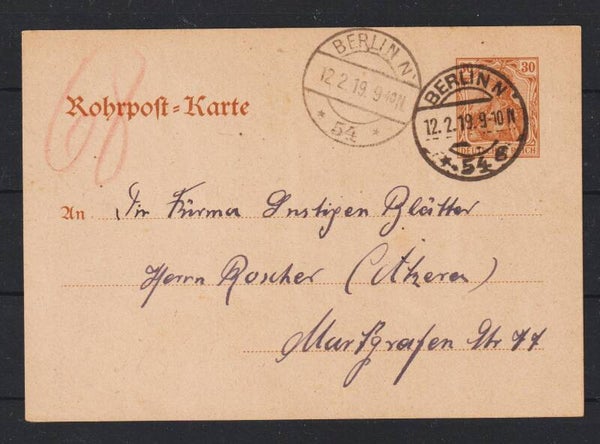 68
BERLIN N
12.2.19. 9-10 N
* 54 *
30
DEUTSCHES REICH
BERLIN N
12.2.19. 9-10 N
*54
Rohrpost-Karte
An Die Firma Lustigen Blätter
Herrn Roscher (Atzerer)
Markgrafen Str 77